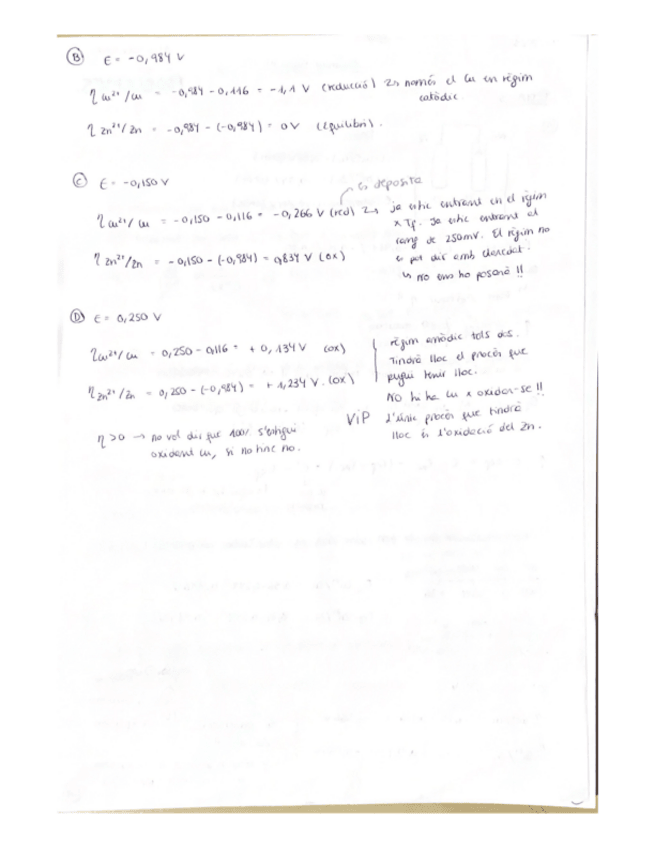 B E = -0,984 V
η Cu²⁺/Cu = -0,984 - 0,116 = -1,1 V (reducció) → només el Cu en règim
catòdic
η Zn²⁺/Zn = -0,984 - (-0,984) = 0 V (Equilibri).
C E = -0,150 V
↳ deposita
η Cu²⁺/Cu = -0,150 - 0,116 = -0,266 V (red) → ja estic entrant en el règim
x Tf. Ja estic entrant al
η Zn²⁺/Zn = -0,150 - (-0,984) = 0,834 V (ox)
rang de 250mV. El règim no
es pot dir amb claredat.
↳ No ens ho posarà !!
D E = 0,250 V
η Cu²⁺/Cu = 0,250 - 0,116 = + 0,134 V (ox)
η Zn²⁺/Zn = 0,250 - (-0,984) = + 1,234 V. (ox)
règim anòdic tots dos.
Tindrà lloc el procés que
pugui tenir lloc.
NO hi ha Cu x oxidar-se !!
VIP L'únic procés que tindrà
lloc és l'oxidació del Zn.
η > 0 → no vol dir que s'estigui
oxidant Cu, si no hi no.